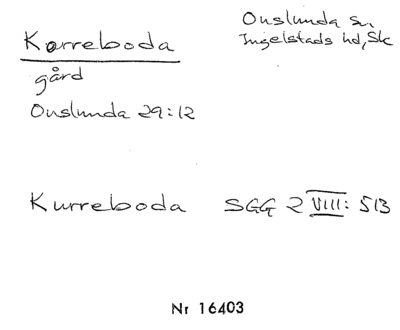 Korreboda
Onslunda sn.
Ingelstads hd, Sk
gård
Onslunda 29:12
Kurreboda SGG 2 VIII: 513
Nr 16403